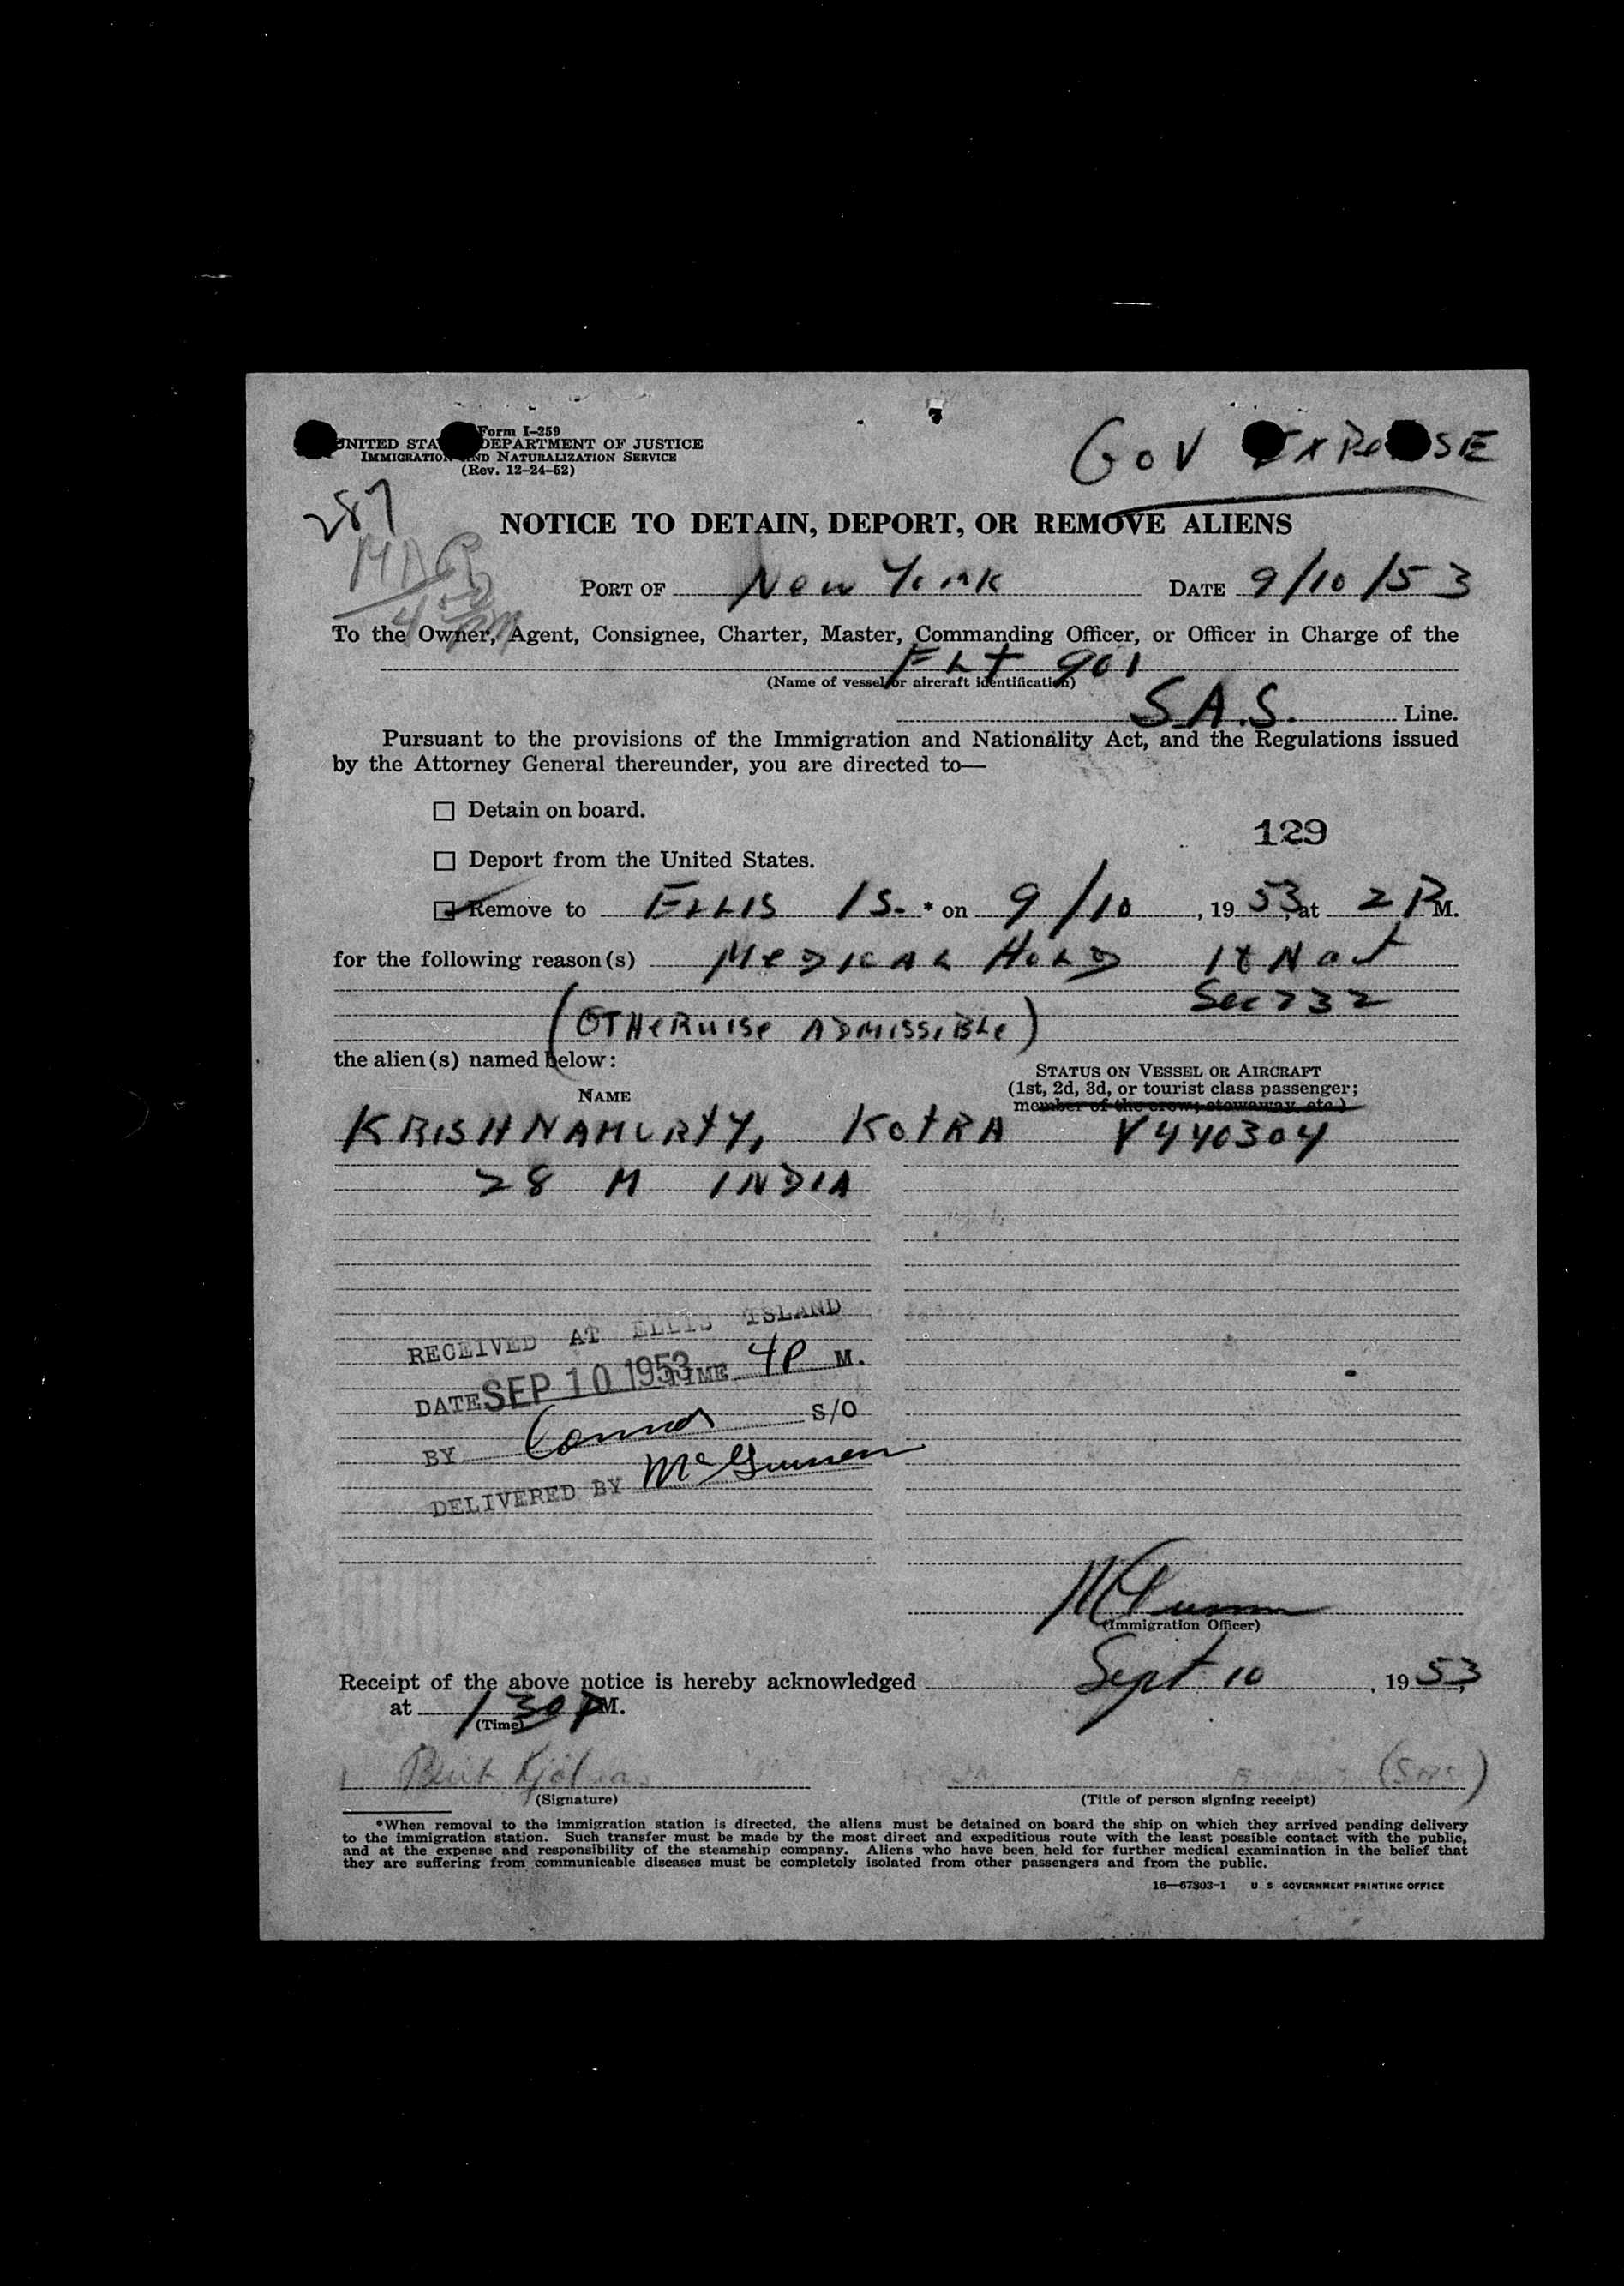 Form I-259
UNITED STA DEPARTMENT OF JUSTICE
IMMIGRATION AND NATURALIZATION SERVICE
(Rev. 12-24-52)
GOV EXPENSE
287
NOTICE TO DETAIN, DEPORT, OR REMOVE ALIENS
PORT OF New York DATE 9/10/53
To the Owner, Agent, Consignee, Charter, Master, Commanding Officer, or Officer in Charge of the
FLT 901
(Name of vessel or aircraft identification)
S.A.S. Line.
Pursuant to the provisions of the Immigration and Nationality Act, and the Regulations issued
by the Attorney General thereunder, you are directed to—
Detain on board.
129
Deport from the United States.
Remove to ELLIS IS. * on 9/10, 1953, at 2 P M.
for the following reason(s) MEDICAL HOLD I & N act
Sec 232
(OTHERWISE ADMISSIBLE)
the alien(s) named below:
NAME
STATUS ON VESSEL OR AIRCRAFT
(1st, 2d, 3d, or tourist class passenger;
member of the crew; stowaway, etc.)
KRISHNAMURTY, KOTRA V440304
28 M INDIA
RECEIVED AT ELLIS ISLAND
DATE SEP 10 1953 TIME 4P M.
BY Connor S/O
DELIVERED BY
(Immigration Officer)
Receipt of the above notice is hereby acknowledged Sept 10, 1953,
at 1 30 P M.
(Time)
(SAS)
(Signature) (Title of person signing receipt)
*When removal to the immigration station is directed, the aliens must be detained on board the ship on which they arrived pending delivery
to the immigration station. Such transfer must be made by the most direct and expeditious route with the least possible contact with the public,
and at the expense and responsibility of the steamship company. Aliens who have been held for further medical examination in the belief that
they are suffering from communicable diseases must be completely isolated from other passengers and from the public.
16—67803-1 U S GOVERNMENT PRINTING OFFICE